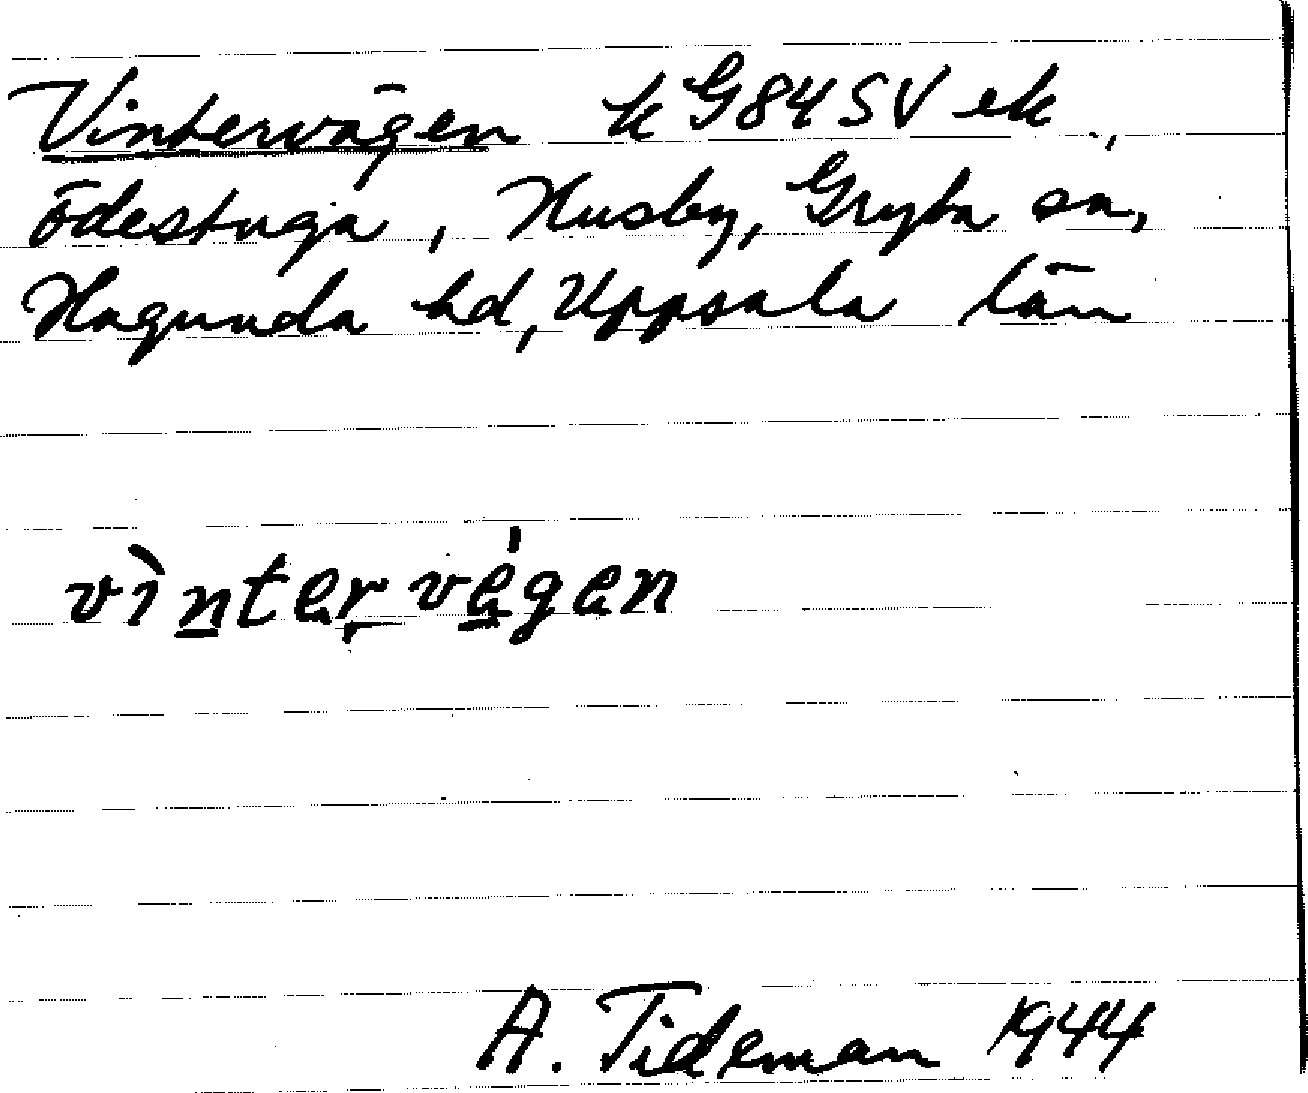 Vintervägen k G84SV ek.,
ödestuga, Husby, Gryta sn,
Hagunda hd, Uppsala län
vìntervégen
A. Tideman 1944